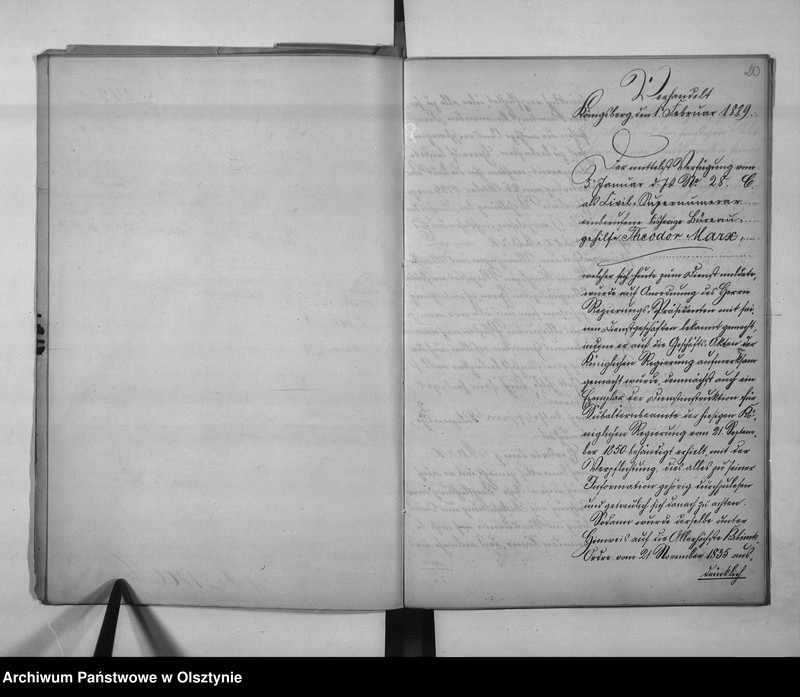 20
Verhandelt
Königsberg, den 1. Februar 1889.
Der mittelst Verfügung vom
5. Januar d. Js. No 28. C.
als Civil-Supernumerar
einberufene bisherige Büreau-
gehilfe Theodor Marx,
welcher sich heute zum Dienst meldete,
wurde auf Anordnung des Herrn
Regierungs-Präsidenten mit sei-
nen Dienstgeschäften bekannt gemacht,
indem er auf die Geschäfts-Akten der
Königlichen Regierung aufmerksam
gemacht wurde, demnächst auch ein
Exemplar der Dienstinstruktion für
Subalternbeamte der hiesigen Kö-
niglichen Regierung vom 21. Septem-
ber 1850 behändigt erhielt, mit der
Verpflichtung, dies alles zu seiner
Information gehörig durchzulesen
und getreulich sich danach zu achten.
Sodann wurde derselbe unter
Hinweis auf die Allerhöchste Kabinets-
Ordre vom 21 November 1835 aus-
drücklich
Archiwum Państwowe w Olsztynie